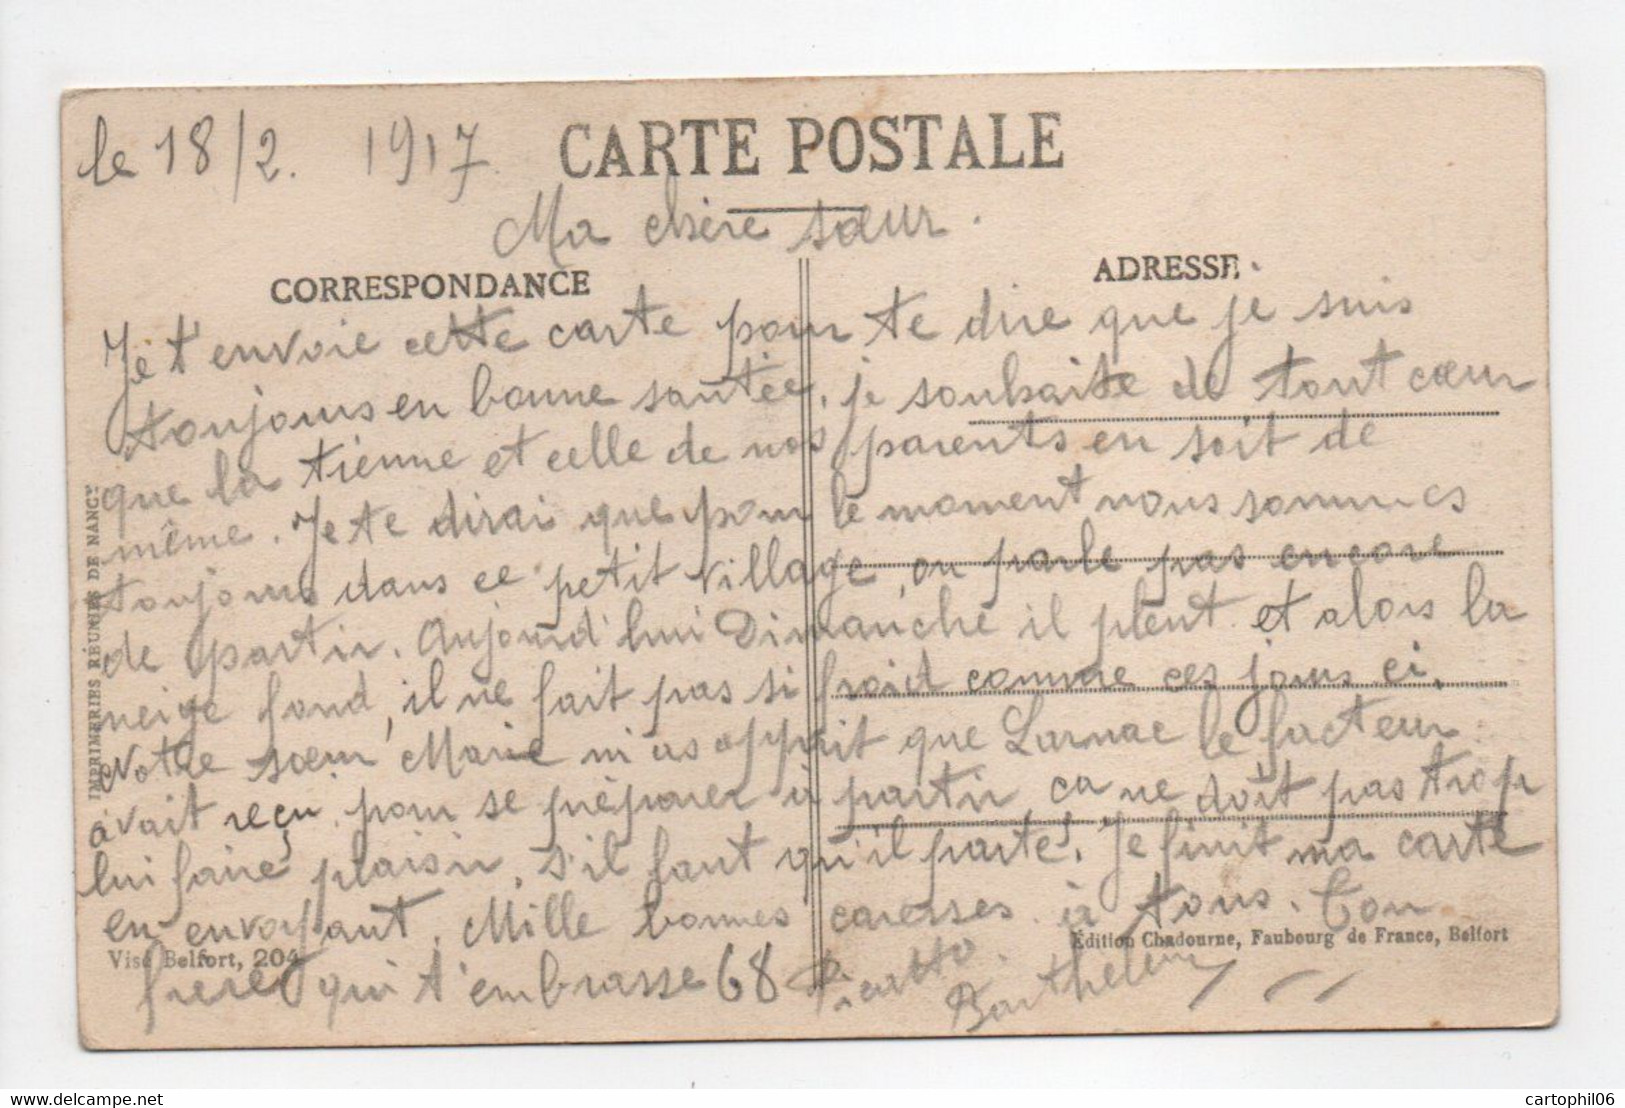 le 18/2. 1917
CARTE POSTALE
Ma chère sœur.
CORRESPONDANCE
ADRESSE
Je t'envoie cette carte pour te dire que je suis
toujours en bonne santée, je souhaite de tout cœur
que la tienne et celle de nos parents en soit de
même. Je te dirai que pour le moment nous sommes
toujours dans ce petit village, on parle pas encore
de partir. Aujourd'hui Dimanche il pleut et alors la
neige fond, il ne fait pas si froid comme ces jours ci.
Notre sœur Marie m'as apprit que Larnac le facteur
avait reçu pour se préparer à partir ça ne doit pas trop
lui faire plaisir, s'il faut qu'il parte. Je finit ma carte
en envoyant Mille bonnes caresses à tous. Ton
frere qui t'embrasse 68
Barthelemy
IMPRIMERIES RÉUNIES DE NANCY
Visé Belfort, 204
Édition Chadourne, Faubourg de France, Belfort
delcampe.net
cartophil06